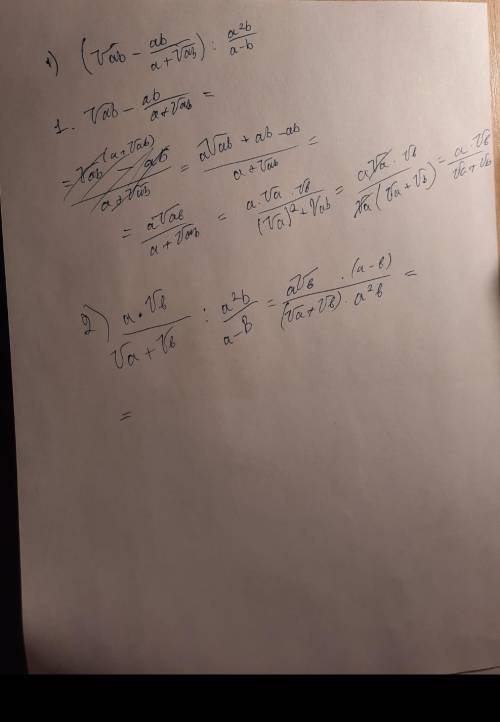 1) (√ab − ab/(a+√ab)) : a²b/(a−b)
1. √ab − ab/(a+√ab) =
= (a√ab + ab − ab)/(a+√ab) =
= a√ab/(a+√ab) = a·√a·√b/((√a)²+√ab) = a√a·√b/(√a(√a+√b)) = a·√b/(√a+√b)
2) a·√b/(√a+√b) : a²b/(a−b) = a√b·(a−b)/((√a+√b)·a²b) =
=